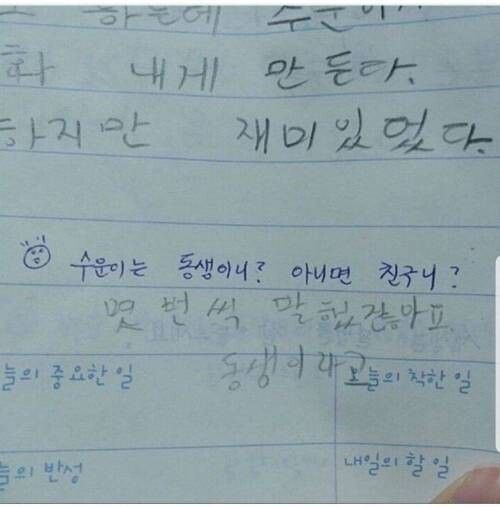 하는데 수운이가
화 내게 만든다.
하지만 재미있었다.
수운이는 동생이니? 아니면 친구니?
몇 번 씩 말 했잖아요
동생이라고
늘의 중요한 일 오늘의 착한 일
늘의 반성 내일의 할 일